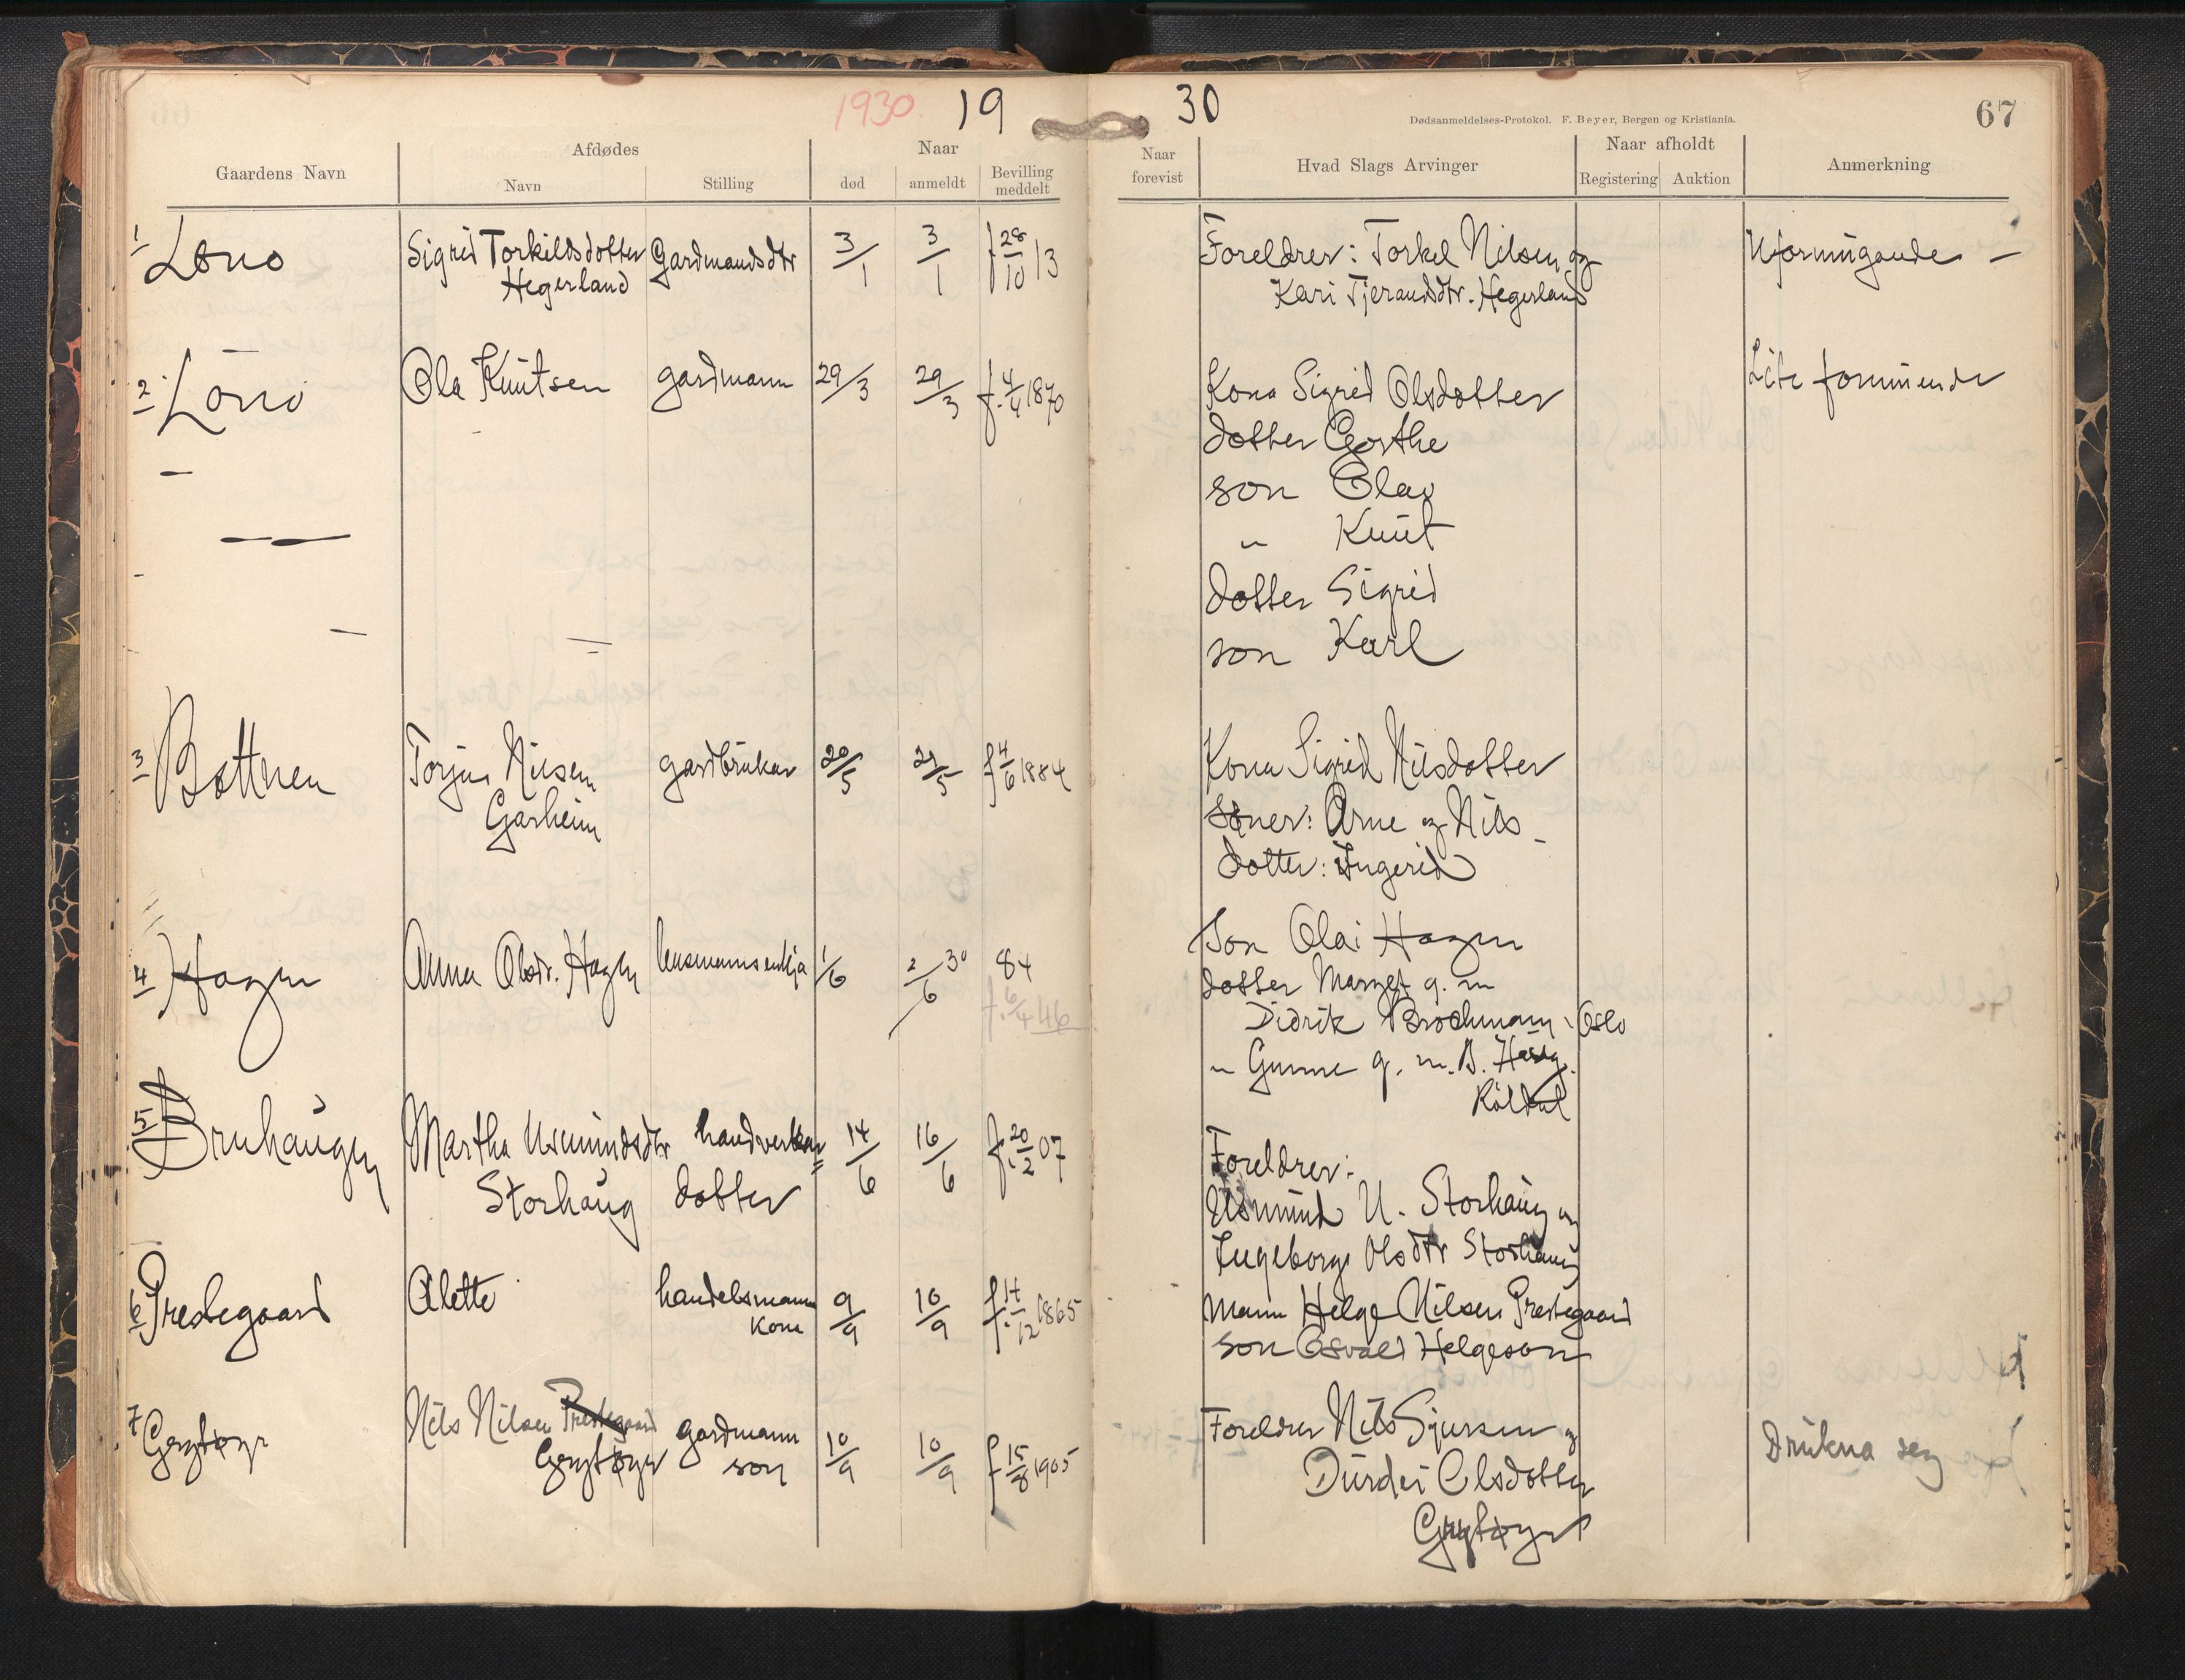 1930 19 30
Dødsanmeldelses-Protokol. F. Beyer, Bergen og Kristiania.
67
Gaardens Navn
Afdødes
Navn
Stilling
Naar
død
anmeldt
Bevilling meddelt
Naar forevist
Hvad Slags Arvinger
Naar afholdt
Registering
Auktion
Anmerkning
1 Lono Sigrid Torkildsdotter Gardmandsdtr 3/1 3/1 f 28/10 13 Foreldrer: Torkel Nilsen og Uformúgande –
Hegerland Kari Tjerandsdtr. Hegerland
2 Lono Ola Knútsen gardmann 29/3 29/3 f. 4/4 1870 Kona Sigrid Olsdotter Lite formúende
dotter Gorthe
son Olav
" Knút
dotter Sigrid
son Karl
3 Bottnen Torjus Nilsen gardbrúkar 20/5 21/5 f 4/6 1884 Kona Sigrid Nilsdotter
Garheim søner: Arne og Nils
dotter: Ingerid
4 Hagen Anna Olsdr. Hagen lensmannsenkja 1/6 2/6 30 84 Son Olai Hagen
f. 6/4 46 dotter Marget g. m
Didrik Brochmann, Oslo
" Gunne g. m. B.
Røldal
5 Bruhaúgen Martha Usmúndsdtr handverkar= 14/6 16/6 f. 20/2 07 Foreldrer:
Storhaúg dotter Usmúnd U. Storhaúg og
Ingeborg Olsdtr Storhaúg
6 Prestegaard Alette handelsmann 9/9 10/9 f. 14/12 1865 Mann Helge Nilsen Prestegaard
Kone son Osvald Helgeson
7 Grytøyr Nils Nilsen Prestegaard gardmann 10/9 10/9 f 15/8 1905 Foreldrer Nils Sjursen og Drúkna seg
Grytøyr son Dúrdei Olsdotter
Grytøyr